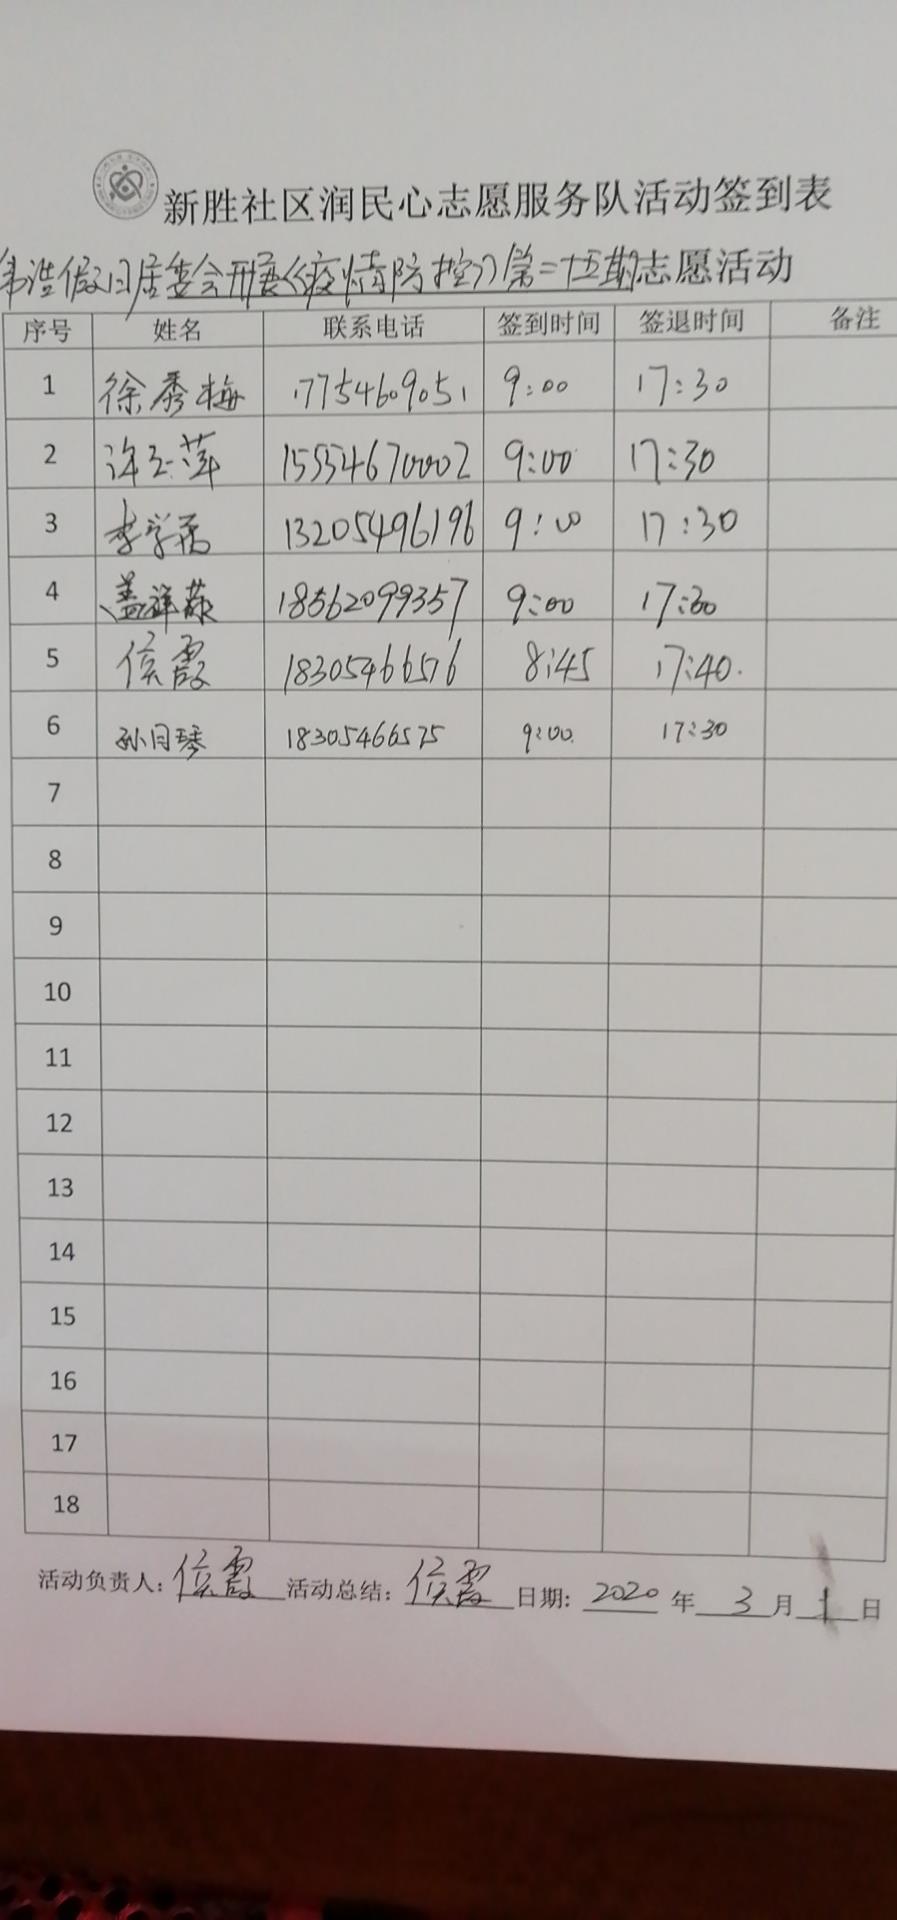 新胜社区润民心志愿服务队活动签到表
假日居委会开展《疫情防控》第二十五期志愿活动
序号 姓名 联系电话 签到时间 签退时间 备注
1 徐秀梅 17754609051 9:00 17:30
2 许玉萍 15554670002 9:00 17:30
3 李学 13205496196 9:00 17:30
4 盖祥 18562099357 9:00 17:30
5 侯霞 18305466576 8:45 17:40.
6 孙月琴 18305466575 9:00 17:30
7
8
9
10
11
12
13
14
15
16
17
18
活动负责人: 侯霞 活动总结: 侯霞 日期: 2020 年 3 月 1 日